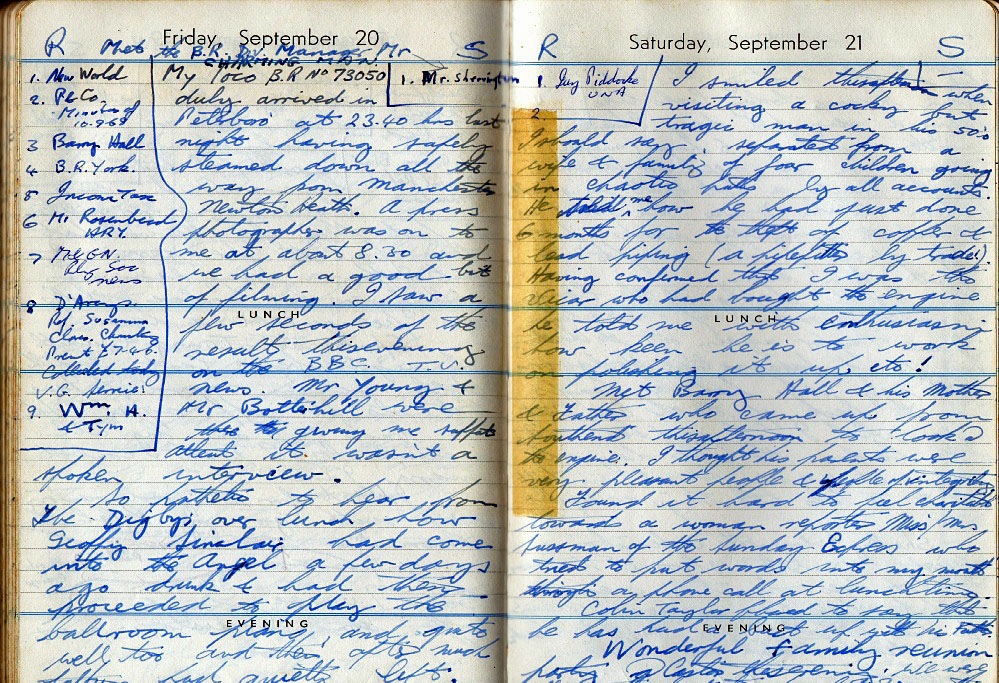 Friday, September 20
R Met the B.R. Div. Manager Mr S
CHARMING MAN.
1. New World
2. P&Co.
Minutes of
10-9-68
3 Barry Hall
4 B.R. York.
5 Income Tax
6 Mr Rosenbend
7
Rly Soc
news
8 D'Arcy
Ref. Susanna
Collected today
V.G. service!
9. Wm. H.
& Tym
My loco B.R No 73050
duly arrived in
Petsboro' at 23.40 hrs last
night having safely
steamed down all the
way from Manchester
Newton Heath. A press
photographer was on to
me at about 8.30 and
we had a good bit
of filming. I saw a
LUNCH
few seconds of the
results this evening
on the BBC. T.V.
news. Mr Young &
Mr Botterhill were
there to giving me support
albeit it wasn't a
spoken interview.
So pathetic to hear from
the Digbys over lunch how
Geoffrey Sinclair had come
into the Angel a few days
ago drunk & had then
proceeded to play the
EVENING
ballroom piano, and quite
well too and then after much
had quietly left.
1. Mr. Sherrington
Saturday, September 21
R S
1. Guy Piddocke
UNA
2.
I smiled this afternoon when
visiting a cocky but
tragic man in his 50's
I should say, separated from a
wife & family of four children going
in chaotic paths by all accounts.
He told me how he had just done
6 months for the theft of copper &
lead piping (a pipefitter by trade).
Having confirmed that I was the
Vicar who had bought the engine
LUNCH
he told me with enthusiasm
how keen he is to work
on polishing it up etc!
Met Barry Hall & his Mother
& Father who came up from
Southend this afternoon to look @
the engine. I thought his parents were
very pleasant people & people of integrity.
Found it hard to feel charitable
towards a woman reporter Miss/Mrs
Sussman of the Sunday Express who
tried to put words into my mouth
through a phone call at lunchtime.
Colin Taylor phoned to say that
EVENING
he has had up with his
Wonderful family reunion
party @ Castor this evening: we were